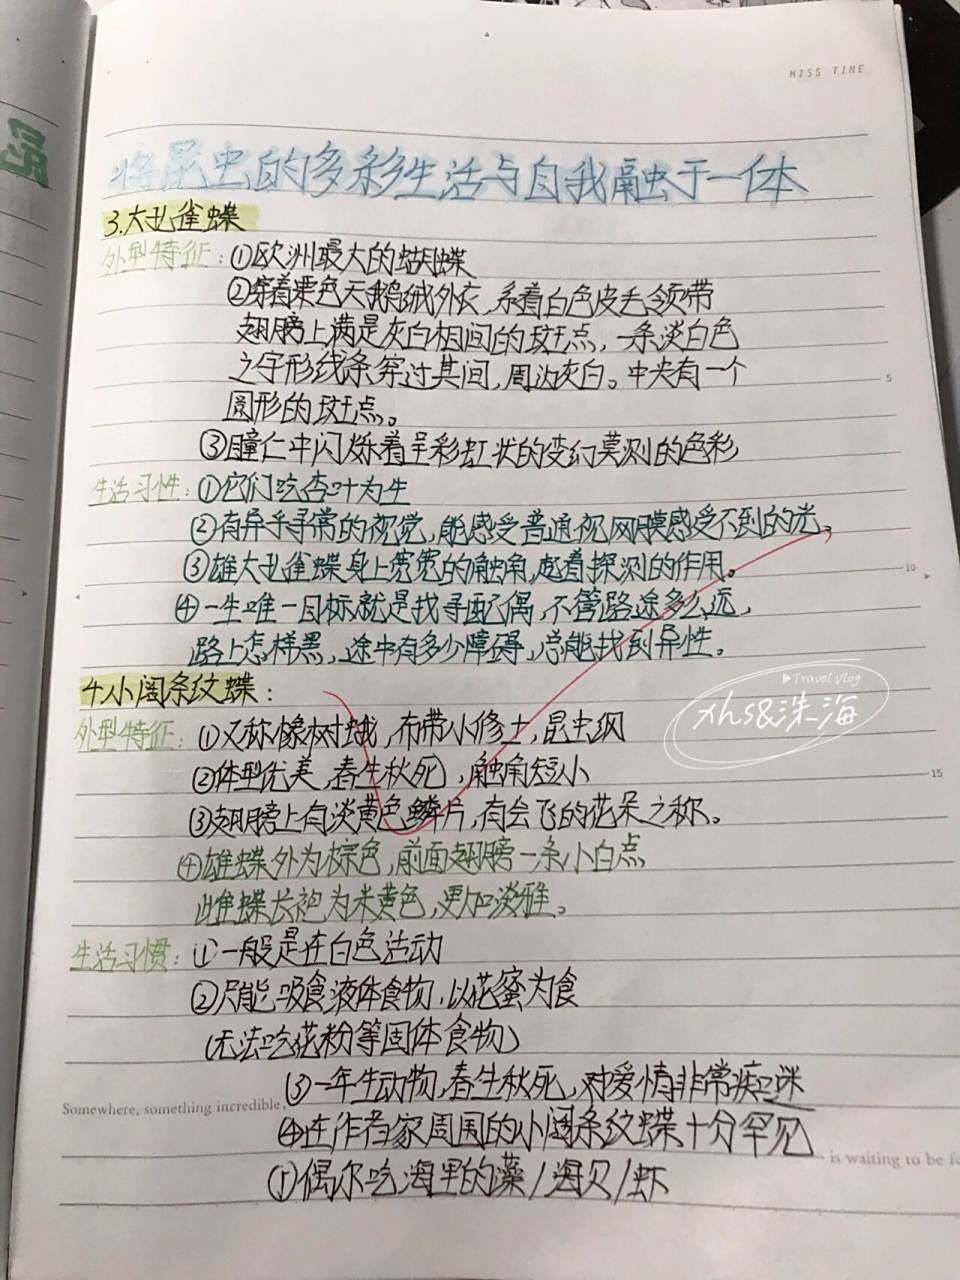 MISS TIME
昆
将昆虫的多彩生活与自我融于一体
3.大孔雀蝶
外型特征：①欧洲最大的蝴蝶
②穿着栗色天鹅绒外衣，系着白色皮毛领带
翅膀上满是灰白相间的斑点，一条淡白色
之字形线条穿过其间，周边灰白。中央有一个
圆形的斑点。
③瞳仁中闪烁着呈彩虹状的变幻莫测的色彩
生活习性：①它们吃杏叶为生
②有异乎寻常的视觉，能感受普通视网膜感受不到的光。
③雄大孔雀蝶身上宽宽的触角，起着探测的作用。
④一生唯一目标就是找寻配偶，不管路途多么远，
路上怎样黑，途中有多少障碍，总能找到异性。
4.小阔条纹蝶：
外型特征：①又称橡树蛾，布带小修士，昆虫纲
②体型优美，春生秋死，触角短小
③翅膀上有淡黄色鳞片，有会飞的花朵之称。
④雄蝶外为棕色，前面翅膀一条小白点
雌蝶长袍为米黄色，更加淡雅。
生活习惯：①一般是在白色活动
②只能吸食液体食物，以花蜜为食
（无法吃花粉等固体食物）
③一年生动物，春生秋死，对爱情非常痴迷
④在作者家周围的小阔条纹蝶十分罕见
⑤偶尔吃海里的藻/海贝/虾
Somewhere, something incredible,
is waiting to be
5
10
15
Travel Vlog
xhs&珠海